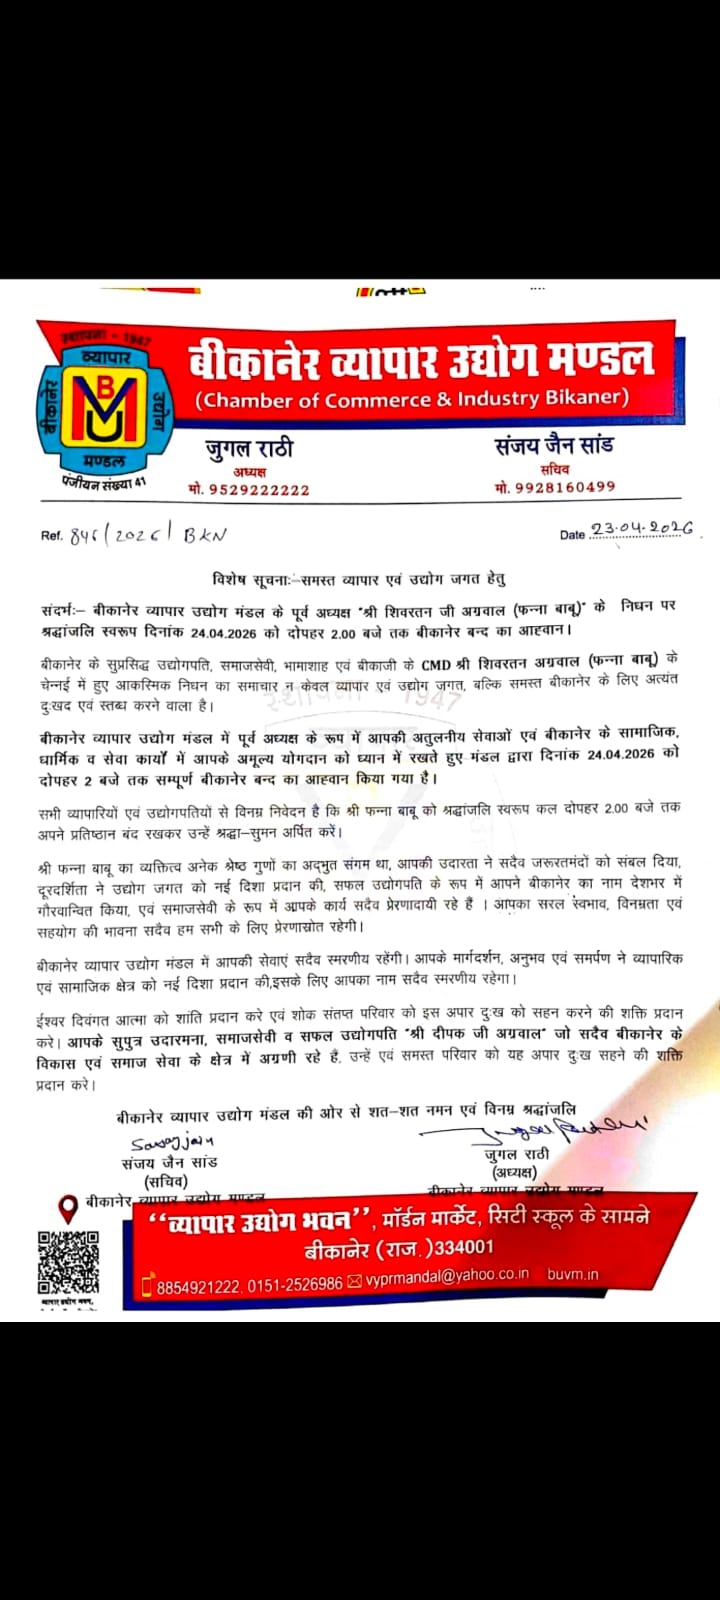 स्थापना - 1947
व्यापार
बीकानेर
उद्योग
BUVM
मण्डल
पंजीयन संख्या 41
बीकानेर व्यापार उद्योग मण्डल
(Chamber of Commerce & Industry Bikaner)
जुगल राठी
अध्यक्ष
मो. 9529222222
संजय जैन सांड
सचिव
मो. 9928160499
Ref. 846/2026/BKN
Date 23-04-2026
विशेष सूचनाः–समस्त व्यापार एवं उद्योग जगत हेतु
संदर्भः– बीकानेर व्यापार उद्योग मंडल के पूर्व अध्यक्ष "श्री शिवरतन जी अग्रवाल (फन्ना बाबू)" के निधन पर
श्रद्धांजलि स्वरूप दिनांक 24.04.2026 को दोपहर 2.00 बजे तक बीकानेर बन्द का आहवान।
बीकानेर के सुप्रसिद्ध उद्योगपति, समाजसेवी, भामाशाह एवं बीकाजी के CMD श्री शिवरतन अग्रवाल (फन्ना बाबू) के
चेन्नई में हुए आकस्मिक निधन का समाचार न केवल व्यापार एवं उद्योग जगत, बल्कि समस्त बीकानेर के लिए अत्यंत
दुःखद एवं स्तब्ध करने वाला है।
बीकानेर व्यापार उद्योग मण्डल में पूर्व अध्यक्ष के रूप में आपकी अतुलनीय सेवाओं एवं बीकानेर के सामाजिक,
धार्मिक व सेवा कार्यों में आपके अमूल्य योगदान को ध्यान में रखते हुए मंडल द्वारा दिनांक 24.04.2026 को
दोपहर 2 बजे तक सम्पूर्ण बीकानेर बन्द का आहवान किया गया है।
सभी व्यापारियों एवं उद्योगपतियों से विनम्र निवेदन है कि श्री फन्ना बाबू को श्रद्धांजलि स्वरूप कल दोपहर 2.00 बजे तक
अपने प्रतिष्ठान बंद रखकर उन्हें श्रद्धा–सुमन अर्पित करें।
श्री फन्ना बाबू का व्यक्तित्व अनेक श्रेष्ठ गुणों का अद्भुत संगम था, आपकी उदारता ने सदैव जरूरतमंदों को संबल दिया,
दूरदर्शिता ने उद्योग जगत को नई दिशा प्रदान की, सफल उद्योगपति के रूप में आपने बीकानेर का नाम देशभर में
गौरवान्वित किया, एवं समाजसेवी के रूप में आपके कार्य सदैव प्रेरणादायी रहे हैं । आपका सरल स्वभाव, विनम्रता एवं
सहयोग की भावना सदैव हम सभी के लिए प्रेरणास्रोत रहेगी।
बीकानेर व्यापार उद्योग मण्डल में आपकी सेवाएं सदैव स्मरणीय रहेंगी। आपके मार्गदर्शन, अनुभव एवं समर्पण ने व्यापारिक
एवं सामाजिक क्षेत्र को नई दिशा प्रदान की,इसके लिए आपका नाम सदैव स्मरणीय रहेगा।
ईश्वर दिवंगत आत्मा को शांति प्रदान करे एवं शोक संतप्त परिवार को इस अपार दुःख को सहन करने की शक्ति प्रदान
करे। आपके सुपुत्र उदारमना, समाजसेवी व सफल उद्योगपति "श्री दीपक जी अग्रवाल" जो सदैव बीकानेर के
विकास एवं समाज सेवा के क्षेत्र में अग्रणी रहे हैं, उन्हें एवं समस्त परिवार को यह अपार दुःख सहने की शक्ति
प्रदान करे।
बीकानेर व्यापार उद्योग मण्डल की ओर से शत–शत नमन एवं विनम्र श्रद्धांजलि
संजय जैन सांड
(सचिव)
बीकानेर व्यापार उद्योग मण्डल
जुगल राठी
(अध्यक्ष)
बीकानेर व्यापार उद्योग मण्डल
"व्यापार उद्योग भवन", मॉर्डन मार्केट, सिटी स्कूल के सामने
बीकानेर (राज.)334001
8854921222, 0151-2526986 vyprmandal@yahoo.co.in buvm.in